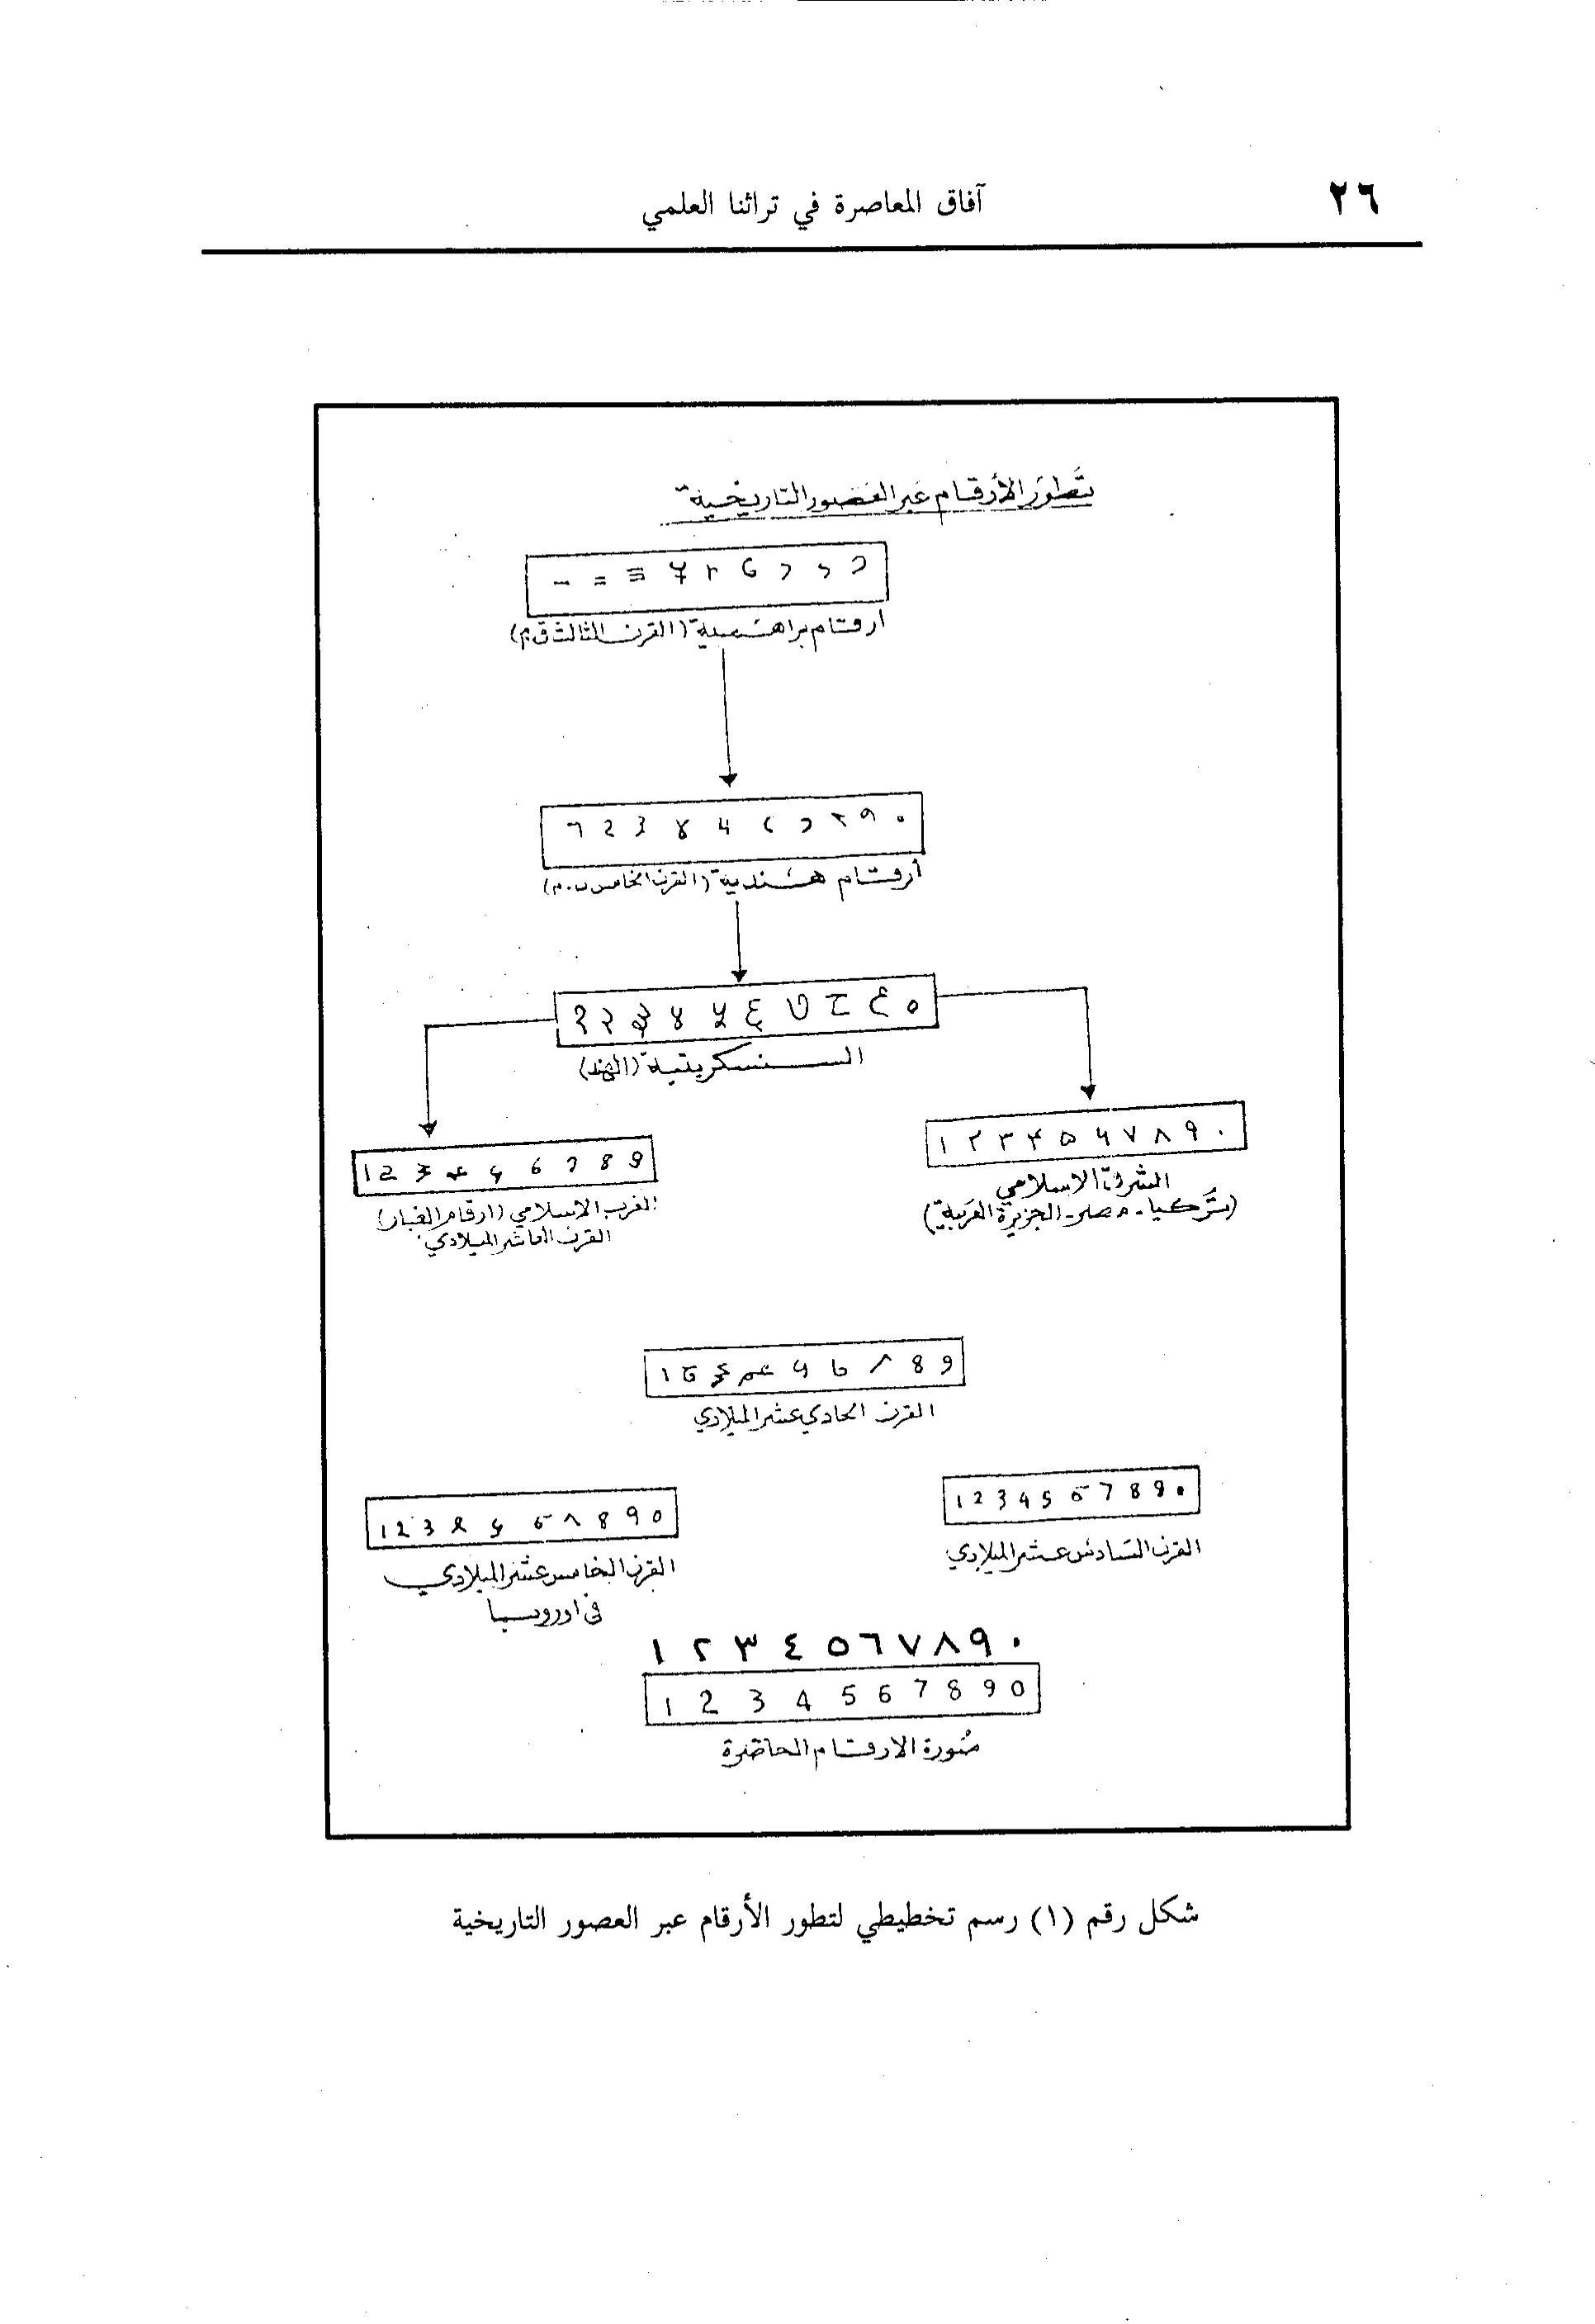 آفاق المعاصرة في تراثنا العلمي ٢٦
تطور الأرقام عبر العصور التاريخية
ارقام براهمية (القرن الثالث ق.م)
أرقام هندية (القرن الخامس ب.م)
० ९ ८ ७ ६ ५ ४ ३ २ १
السنسكريتية (الهند)
١ ٢ ٣ ۴ ٥ ٦ ٧ ٨ ٩ ٠
الشرق الاسلامي
(تركيا - مصر - الجزيرة العربية)
الغرب الاسلامي (ارقام الغبار)
القرن العاشر الميلادي
القرن الحادي عشر الميلادي
1 2 3 4 5 6 7 8 9 .
القرن السادس عشر الميلادي
القرن الخامس عشر الميلادي
في اوروبا
١ ٢ ٣ ٤ ٥ ٦ ٧ ٨ ٩ ٠
1 2 3 4 5 6 7 8 9 0
صورة الارقام الحاضرة
شكل رقم (١) رسم تخطيطي لتطور الأرقام عبر العصور التاريخية